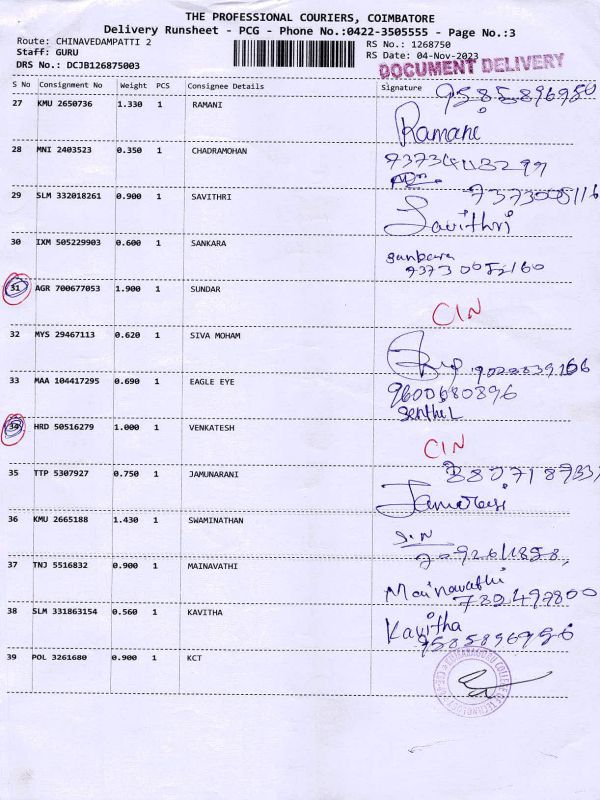 THE PROFESSIONAL COURIERS, COIMBATORE
Delivery Runsheet - PCG - Phone No.:0422-3505555 - Page No.:3
Route: CHINAVEDAMPATTI 2
Staff: GURU
DRS No.: DCJB126875003
RS No.: 1268750
RS Date: 04-Nov-2023
DOCUMENT DELIVERY
S No Consignment No Weight PCS Consignee Details Signature
27 KMU 2650736 1.330 1 RAMANI
9585896980
Ramani
28 MNI 2403523 0.350 1 CHADRAMOHAN
29 SLM 332018261 0.900 1 SAVITHRI
7373005116
Savithri
30 IXM 505229903 0.600 1 SANKARA
Sankara
31 AGR 700677053 1.900 1 SUNDAR
CIN
32 MYS 29467113 0.620 1 SIVA MOHAM
33 MAA 104417295 0.690 1 EAGLE EYE
9600680896
Senthil
34 HRD 50516279 1.000 1 VENKATESH
CIN
35 TTP 5307927 0.750 1 JAMUNARANI
36 KMU 2665188 1.430 1 SWAMINATHAN
S.N
37 TNJ 5516832 0.900 1 MAINAVATHI
Mainavathi
789499800
38 SLM 331863154 0.560 1 KAVITHA
Kavitha
39 POL 3261680 0.900 1 KCT